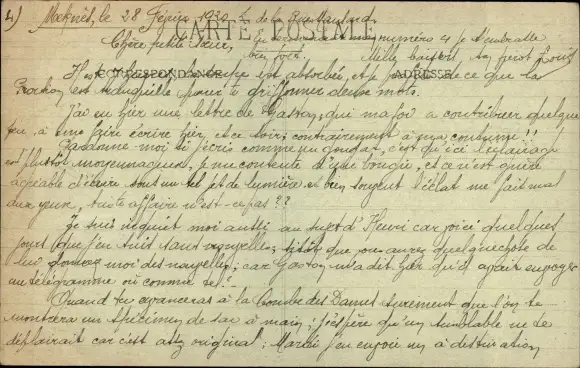 4) Meknès, le 28 Février 1930
CARTE POSTALE
En numéro 4 je t'embrasse
Chère petite Sœur,
bien fort. Mille baisers, ton Louis
CORRESPONDANCE
ADRESSE
est absorbée, et je de ce que la
est tranquille pour te griffonner deux mots.
J'ai eu hier une lettre de Gaston, qui ma foi a contribuer quelque
peu, à me faire écrire hier, et ce soir, contrairement à ma coutume !!
Pardonne-moi si j'écris comme un goudat, c'est qu'ici l'éclairage
est plutôt moyennageux, je me contente d'une bougie, et ce n'est guère
agréable d'écrire sous un tel jet de lumière et bien souvent l'éclat me fait mal
aux yeux, triste affaire n'est-ce pas ??
Je suis inquiet moi aussi au sujet d'Henri car voici quelques
jours que j'en suis sans nouvelles; sitôt que vous aurez quelque chose de
lui donnez moi des nouvelles, car Gaston m'a dit hier qu'il avait envoyé
un télégramme où comme tel.
Quand tu avanceras à la Combe des Dames surement que l'on te
montrera un spécimen de sac à main; j'espère qu'un semblable ne te
déplairait car c'est assez original; Mardi j'en envoie un à destination